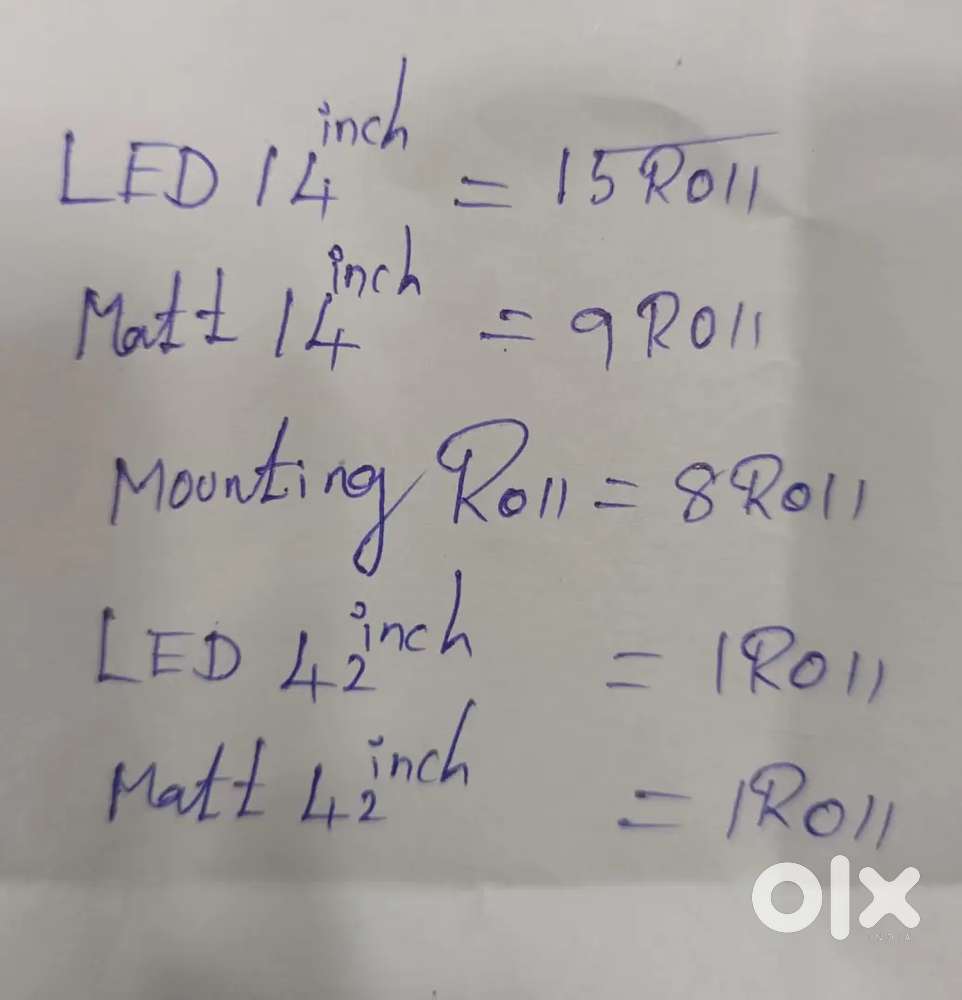 LED 14 inch = 15 Roll
Matt 14 inch = 9 Roll
Mounting Roll = 8 Roll
LED 42 inch = 1 Roll
Matt 42 inch = 1 Roll
olx
INDIA